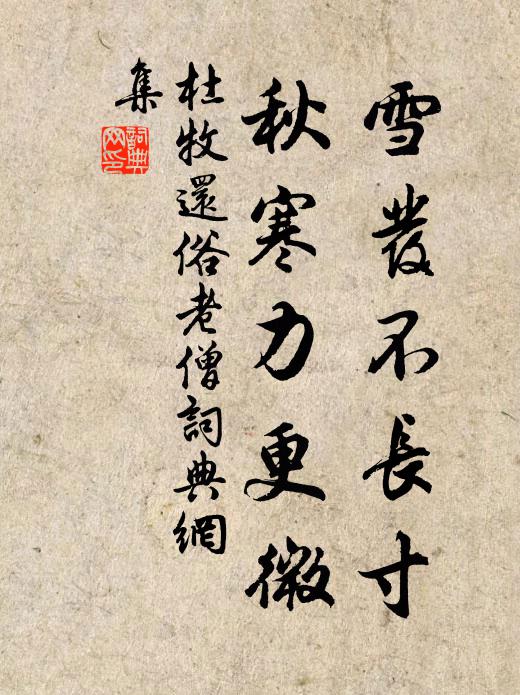 雪發不長寸
秋寒力更微
杜牧還俗老僧詞典網
集
詞典网印